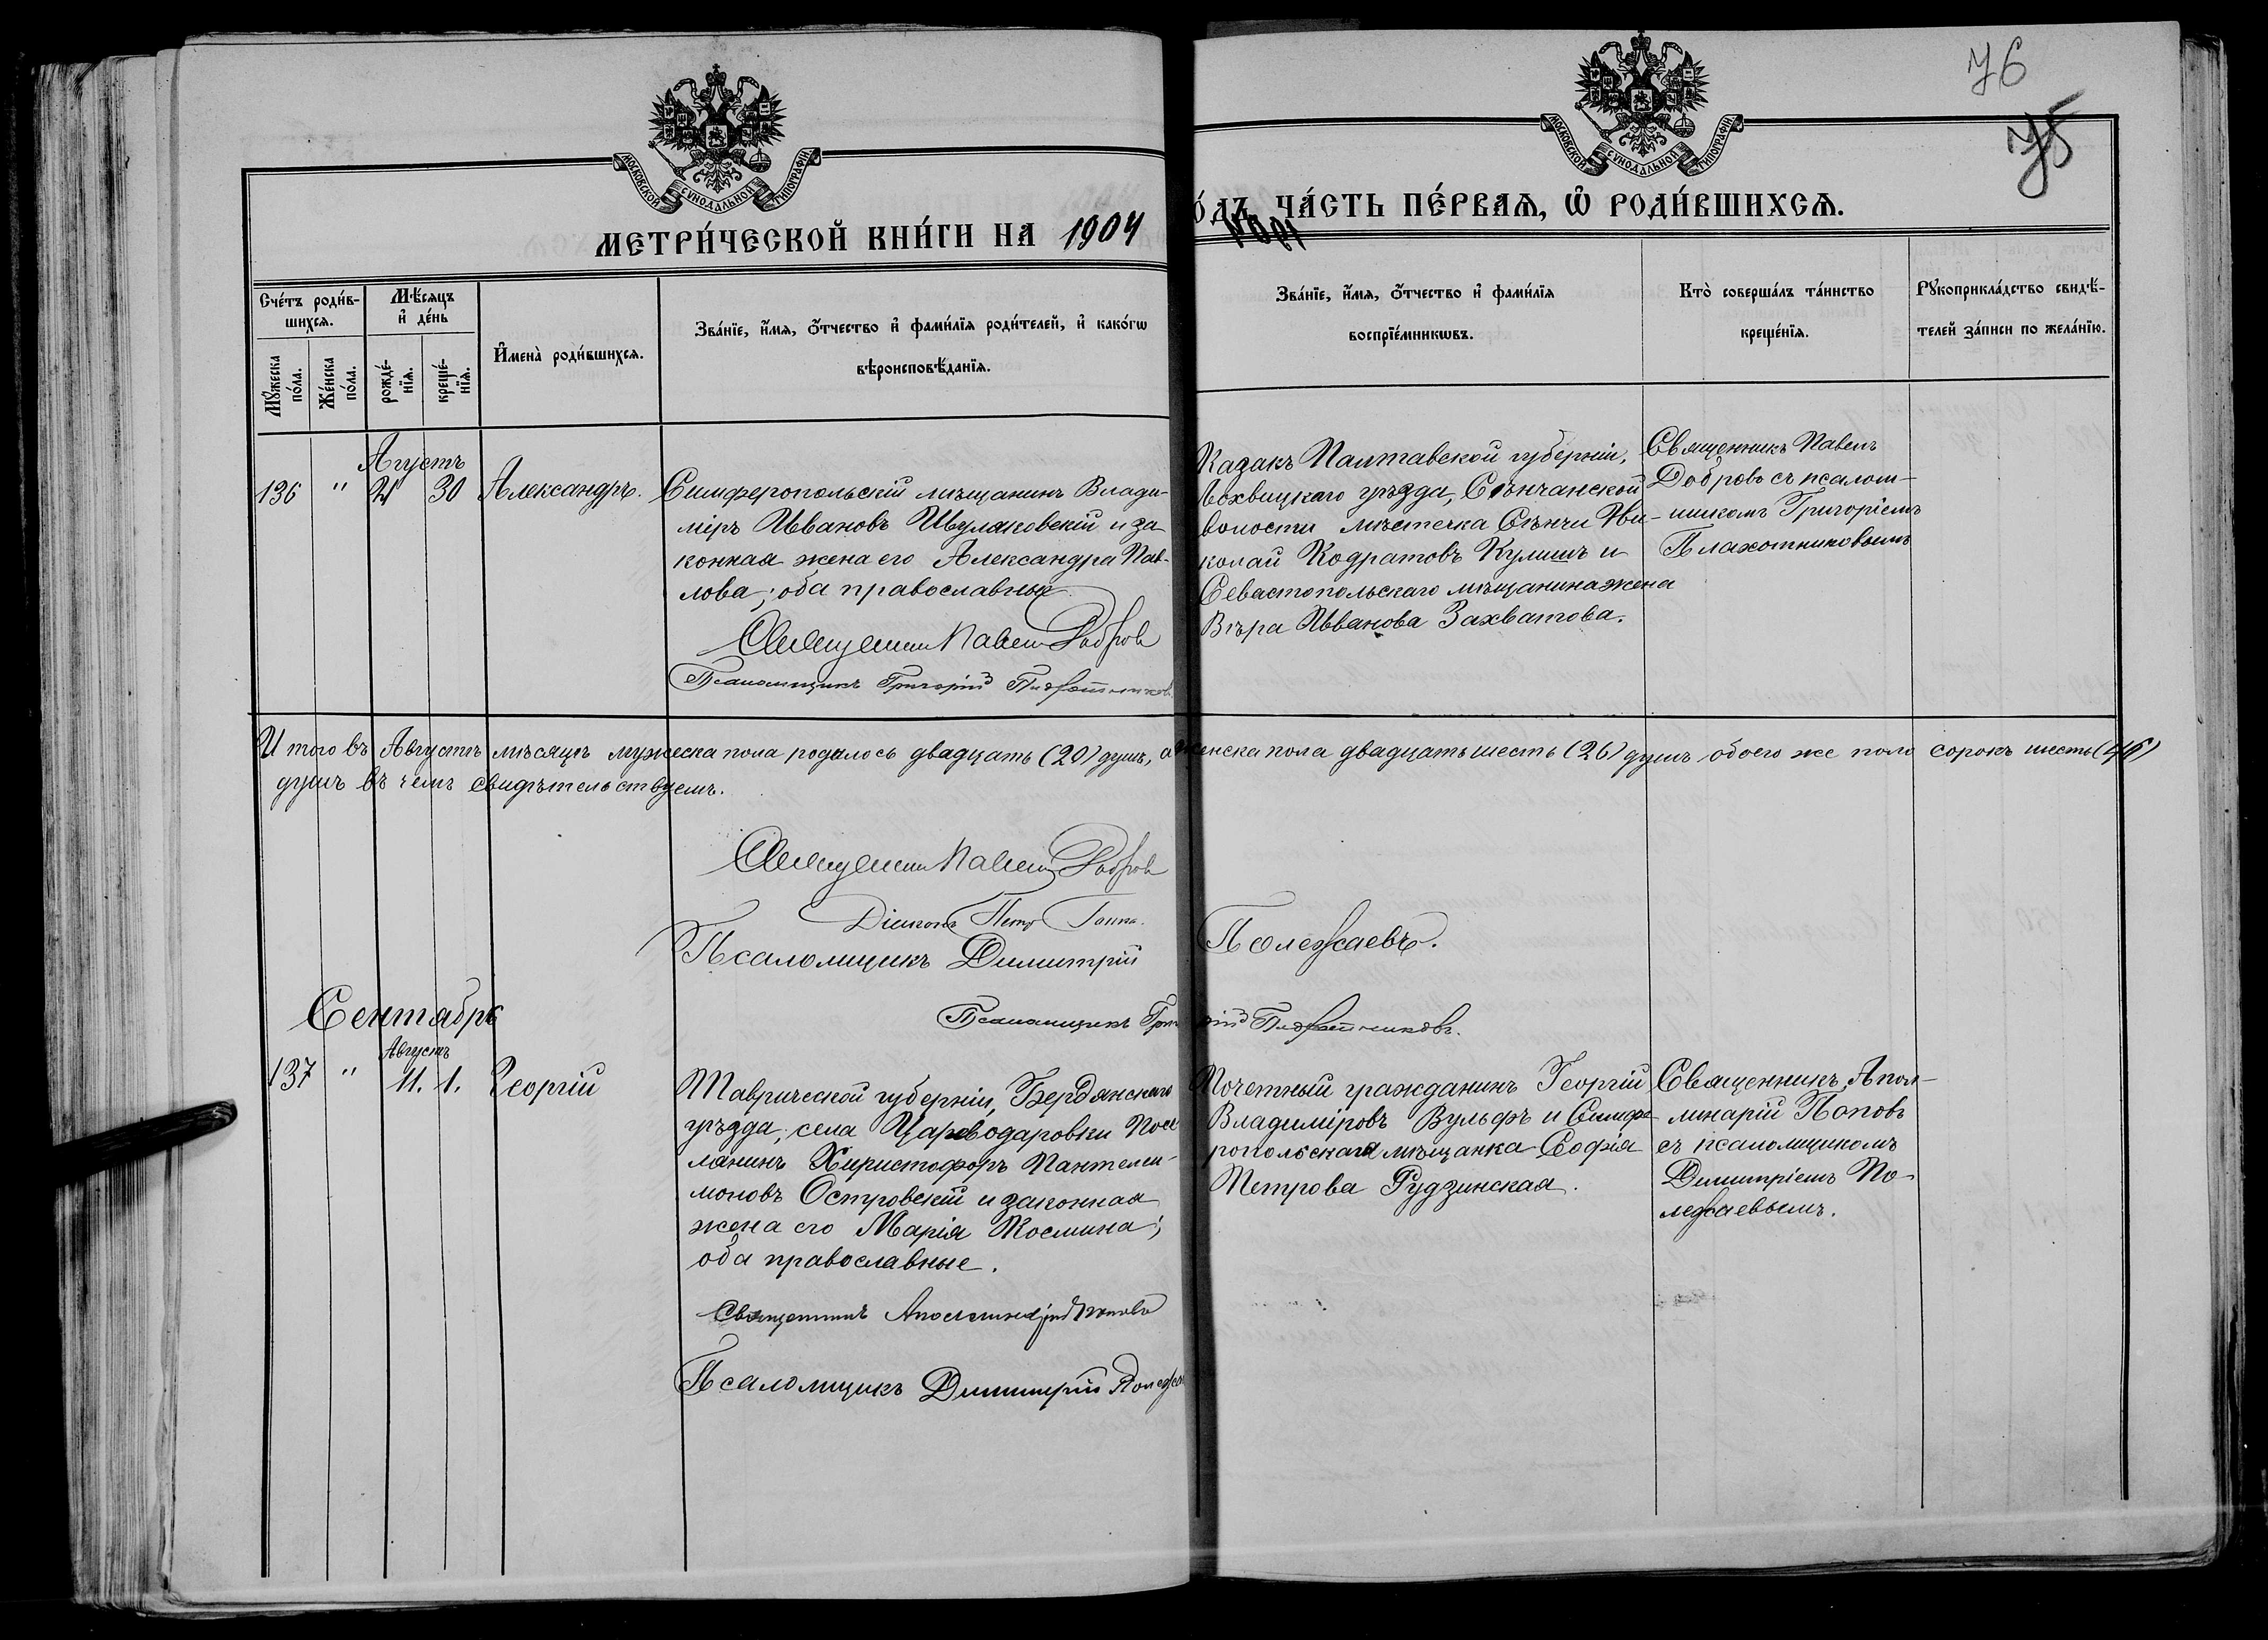 76
75
МОСКОВСКОЙ СУНОДАЛЬНОЙ ТИПОГРАФІИ
МОСКОВСКОЙ СУНОДАЛЬНОЙ ТИПОГРАФІИ
МЕТРИ́ЧЕСКОЙ КНИ́ГИ НА 1904
О́ДЪ, ЧА́СТЬ ПЕ́РВАѦ, Ѽ РОДИ́ВШИХСѦ.
Сче́тъ роди́в-
шихсѧ.
Мꙋ́жеска
по́ла.
Же́нска
по́ла.
Мѣ́сяцъ
и҆ де́нь
рожде́-
нїѧ.
креще́-
нїѧ.
И҆мена̀ роди́вшихсѧ.
Зва́нїе, и҆́мѧ, ѻ҆́тчество и҆ фами́лїѧ роди́телей, и҆ како́гѡ
вѣроисповѣ́данїѧ.
Зва́нїе, и҆́мѧ, ѻ҆́тчество и҆ фами́лїѧ
воспрїе́мникѡвъ.
Кто̀ соверша́лъ та́инство
креще́нїѧ.
Рꙋкоприкла́дство свидѣ́-
телей за́писи по жела́нїю.
Августъ
136 " 21 30 Александръ.
Симферопольскій мѣщанинъ Влади-
міръ Ивановъ Шуляковскій и за
конная жена его Александра Пав-
лова; оба православные.
Священникъ Павелъ Добровъ
Псаломщикъ Григорій Плахотниковъ
Казакъ Палтавской губерніи,
Лохвицкаго уѣзда, Сѣнчанской
волости мѣстечка Сѣнчи Ни-
колай Кодратовъ Кулишъ и
Севастопольскаго мѣщанина жена
Вѣра Иванова Захватова.
Священникъ Павелъ
Добровъ съ псалом-
щикомъ Григоріемъ
Плахотниковымъ
И того въ Августѣ мѣсяцѣ мужеска пола родилось двадцать (20) душъ, а женска пола двадцать шесть (26) душъ обоего же пола сорокъ шесть (46)
душъ въ чемъ свидѣтельствуемъ.
Священникъ Павелъ Добровъ
Діаконъ Петръ
Псаломщикъ Димитрій Полежаевъ.
Псаломщикъ Григорій Плахотниковъ.
Сентябрь
Августъ
137 " 11. 1. Георгій
Таврической губерніи, Бердянскаго
уѣзда, села Цареводаровки Посе
лянинъ Христофоръ Пантелеи-
моновъ Островскій и законная
жена его Марія Космина;
оба православные.
Священникъ Аполлинарій Поповъ
Псаломщикъ Димитрій Полежа
Почетный гражданинъ Георгій
Владиміровъ Вульфъ и Симфе
ропольская мѣщанка Софія
Петрова Рудзинская.
Священникъ Апол-
линарій Поповъ
съ псаломщикомъ
Димитріемъ По-
лежаевымъ.